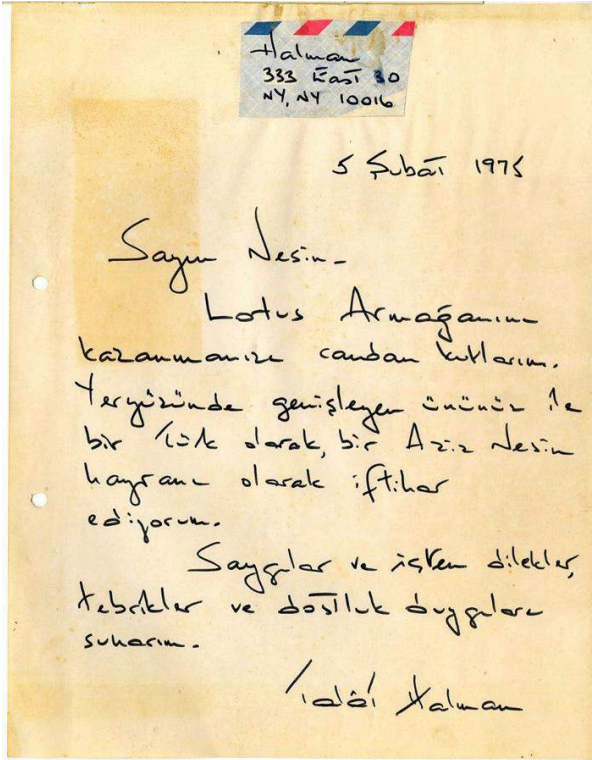 Halman
333 East 30
NY, NY 10016
5 Şubat 1975
Sayın Nesin-
Lotus Armağanını
kazanmanızı candan kutlarım.
Yeryüzünde genişleyen ününüz ile
bir Türk olarak, bir Aziz Nesin
hayranı olarak iftihar
ediyorum.
Saygılar ve içten dilekler,
tebrikler ve dostluk duyguları
sunarım.
Talât Halman